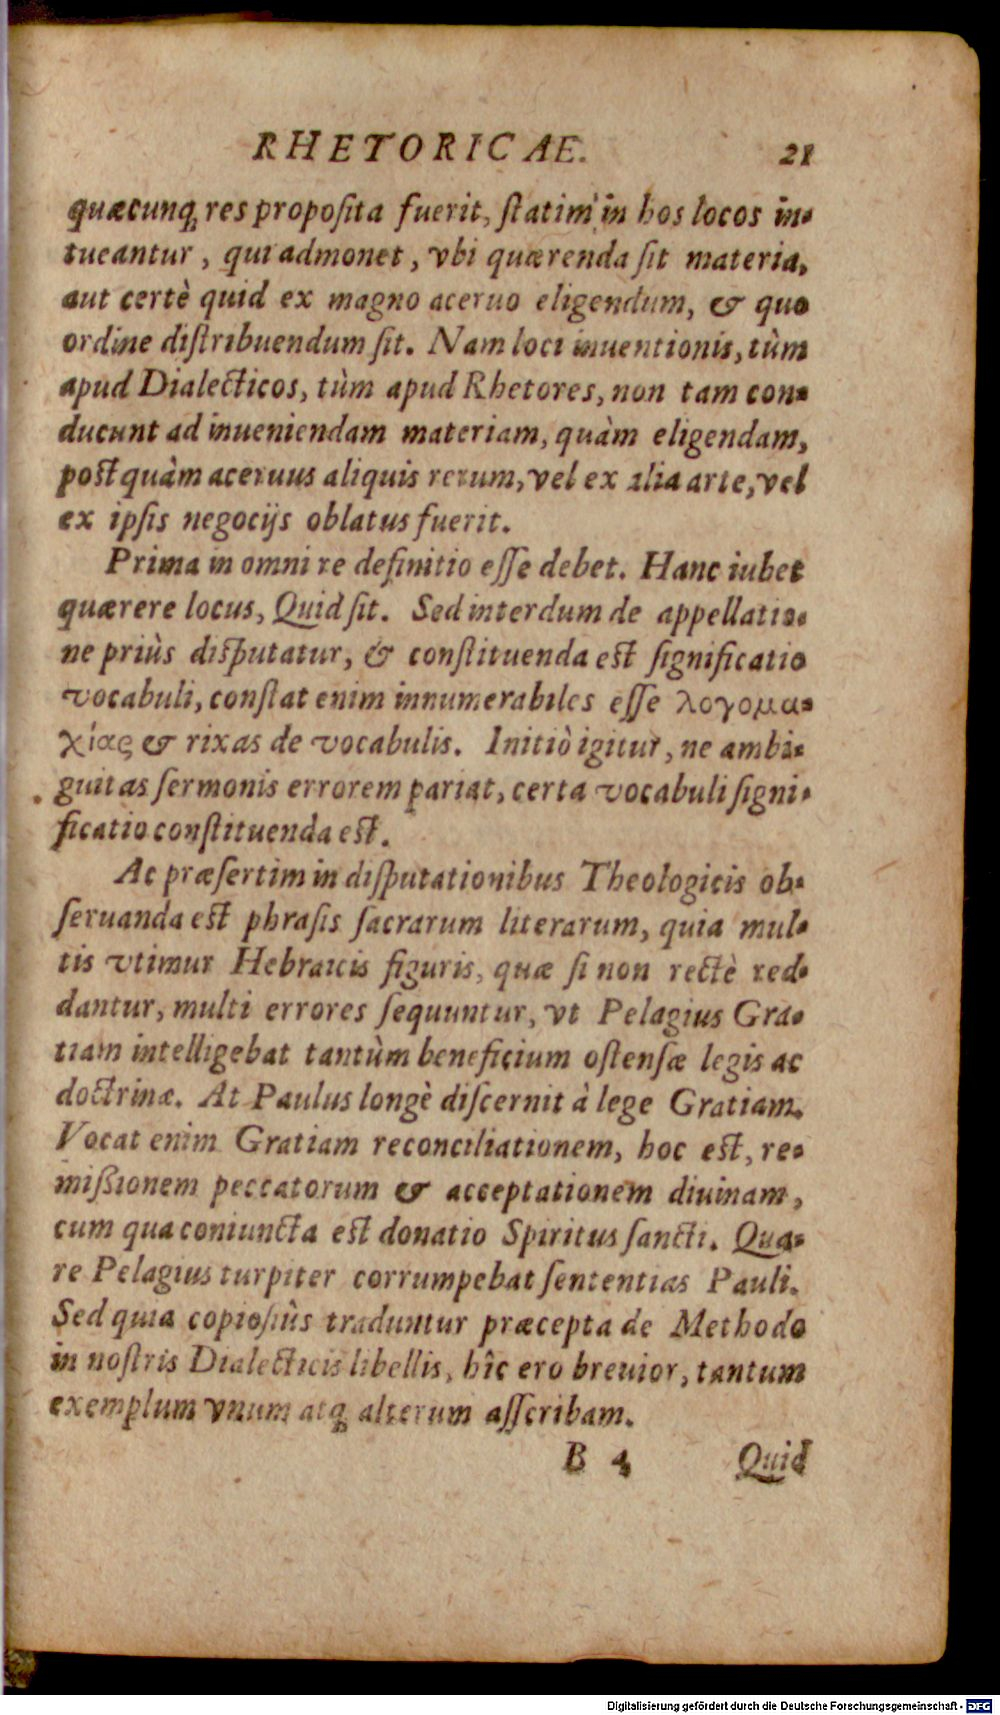 RHETORICAE. 21
quæcunq́; res proposita fuerit, statim in hos locos in-
tueantur, qui admonet, vbi quærenda sit materia,
aut certè quid ex magno aceruo eligendum, & quo
ordine distribuendum sit. Nam loci inuentionis, tùm
apud Dialecticos, tùm apud Rhetores, non tam con-
ducunt ad inueniendam materiam, quàm eligendam,
postquàm aceruus aliquis rerum, vel ex alia arte, vel
ex ipsis negocijs oblatus fuerit.
Prima in omni re definitio esse debet. Hanc iubet
quærere locus, Quid sit. Sed interdum de appellatio-
ne priùs disputatur, & constituenda est significatio
vocabuli, constat enim innumerabiles esse λογομα-
χίας & rixas de vocabulis. Initiò igitur, ne ambi-
guitas sermonis errorem pariat, certa vocabuli signi-
ficatio constituenda est.
Ac præsertim in disputationibus Theologicis ob-
seruanda est phrasis sacrarum literarum, quia mul-
tis vtimur Hebraicis figuris, quæ si non rectè red-
dantur, multi errores sequuntur, vt Pelagius Gra-
tiam intelligebat tantùm beneficium ostensæ legis ac
doctrinæ. At Paulus longè discernit à lege Gratiam.
Vocat enim Gratiam reconciliationem, hoc est, re-
mißionem peccatorum & acceptationem diuinam,
cum qua coniuncta est donatio Spiritus sancti. Qua-
re Pelagius turpiter corrumpebat sententias Pauli.
Sed quia copiosiùs traduntur præcepta de Methodo
in nostris Dialecticis libellis, hîc ero breuior, tantum
exemplum vnum atq; alterum asscribam.
B 4 Quid
Digitalisierung gefördert durch die Deutsche Forschungsgemeinschaft - DFG